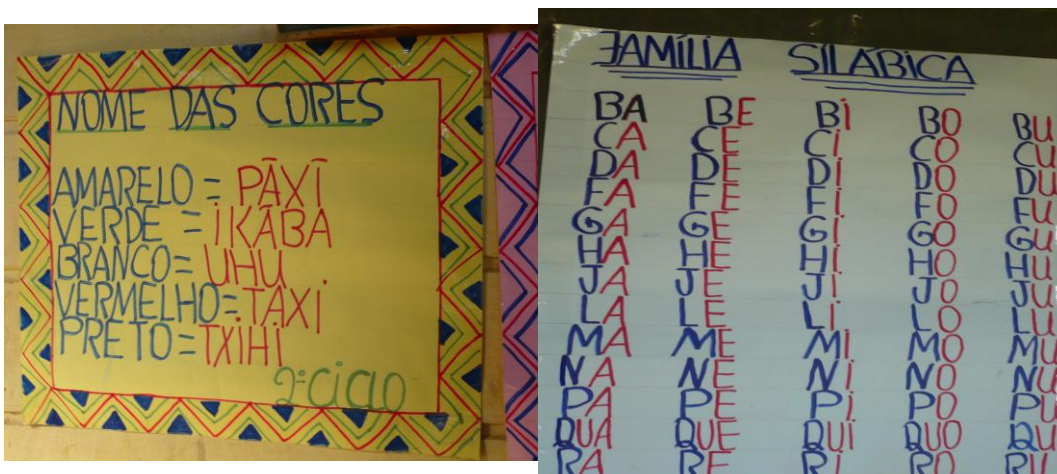 NOME DAS CORES
AMARELO = PÃXĨ
VERDE = IKÃBA
BRANCO = UHU
VERMELHO = TÀXI
PRETO = TXIHI
2º CICLO
FAMÍLIA SILÁBICA
BA BE BI BO BU
CA CE CI CO CU
DA DE DI DO DU
FA FE FI FO FU
GA GE GI GO GU
HA HE HI HO HU
JA JE JI JO JU
LA LE LI LO LU
MA ME MI MO MU
NA NE NI NO NU
PA PE PI PO PU
QUA QUE QUI QUO QU
RA RE RI RO RU